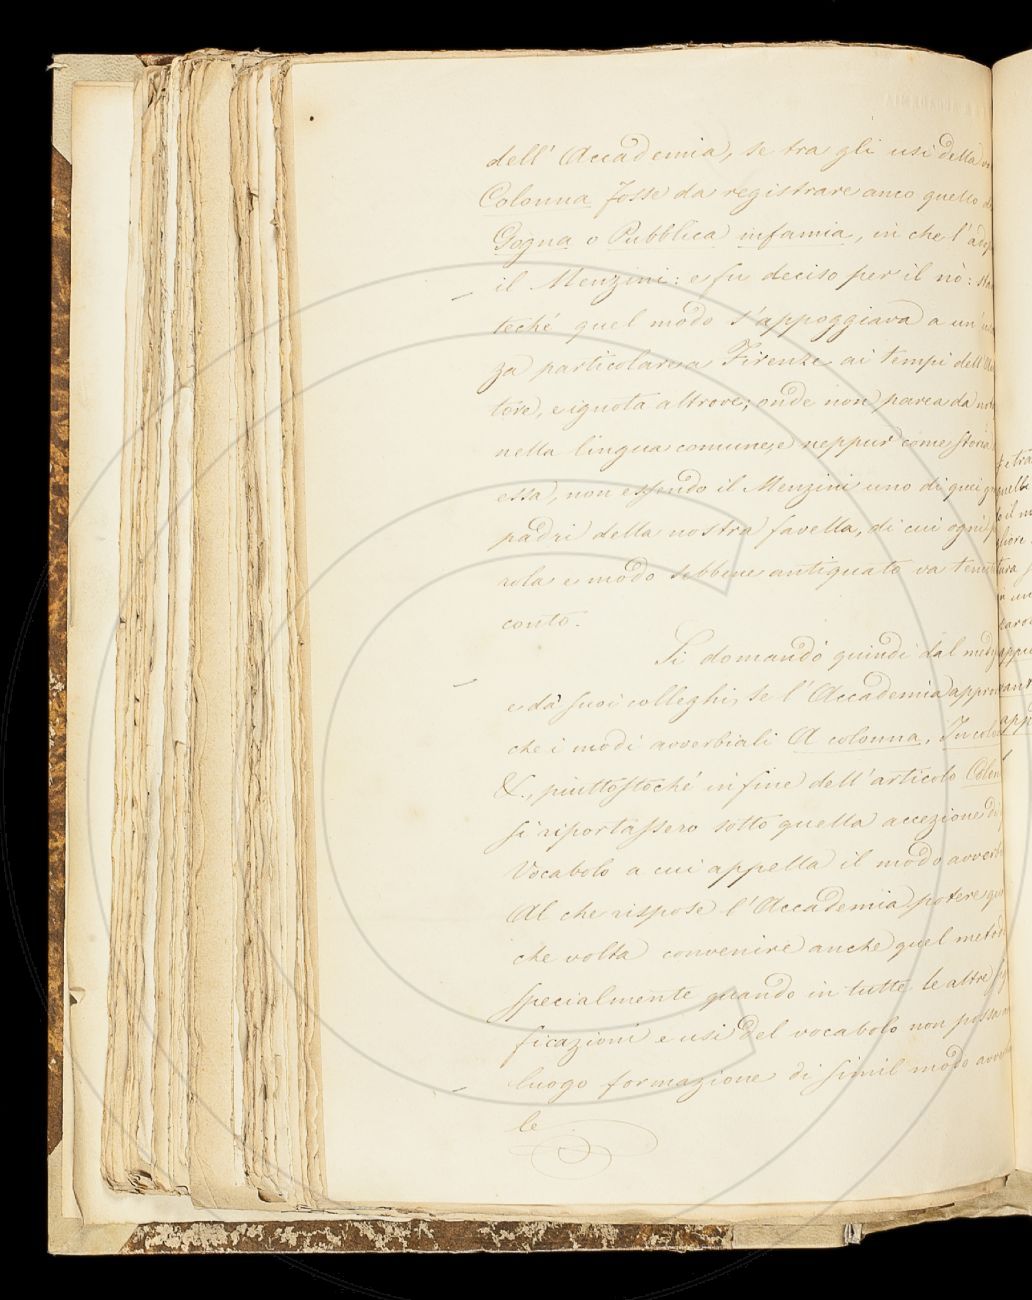 dell' Accademia, se tra gli usi della
Colonna fosse da registrare anco quello
Gogna o Pubblica infamia, in che l'
il Menzini: e fu deciso per il nò:
teché quel modo s'appoggiava a un'
za particolare a Firenze ai tempi dell'
tore, e ignota altrove; onde non parea da
nella lingua comune, e neppur come storia
essa, non essendo il Menzini uno di quei
padri della nostra favella, di cui ogni
rola e modo sebbene antiquato va
conto.
Si domandò quindi dal
e da' suoi colleghi, se l'Accademia
che i modi avverbiali A colonna, In
&., piuttostoché in fine dell'articolo
si riportassero sotto quella accezione
Vocabolo a cui appella il modo
Al che rispose l'Accademia potere
che volta convenire anche quel
specialmente quando in tutte le altre
ficazioni e usi del vocabolo non possa
luogo formazione di simil modo
le